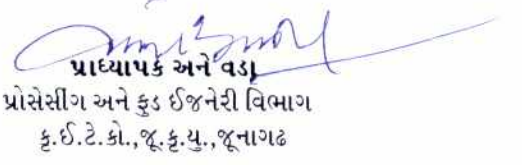 પ્રાધ્યાપક અને વડા
પ્રોસેસીંગ અને ફુડ ઈજનેરી વિભાગ
કૃ.ઈ.ટે.કો.,જૂ.કૃ.યુ.,જૂનાગઢ